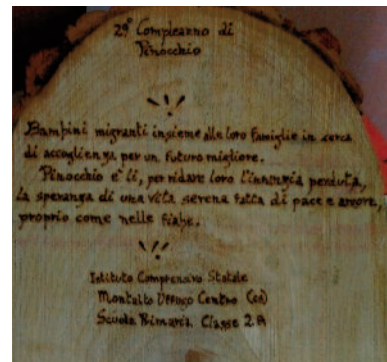 29° Compleanno di
Pinocchio
Bambini migranti insieme alle loro famiglie in cerca
di accoglienza per un futuro migliore.
Pinocchio è lì, per ridare loro l'infanzia perduta,
la speranza di una vita serena fatta di pace e amore,
proprio come nelle fiabe.
Istituto Comprensivo Statale
Montalto Uffugo Centro (cs)
Scuola Primaria. Classe 2A